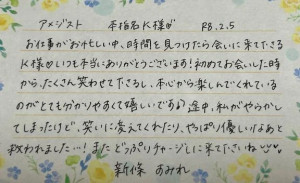 アメジスト 本指名K様♡ R8.2.5
お仕事がお忙しい中、時間を見つけたら会いに来て下さる
K様♡いつも本当にありがとうございます！初めてお会いした時
から、たくさん笑わせて下さるし、本心から楽しんでくれている
のがとても分かりやすくて嬉しいです♪途中、私がやらかし
てしまったけど、笑いに変えてくれたり、やっぱり優しいなぁと
救われました…！またどっぷりチャージしに来て下さいね♡♡
新條 あみれ